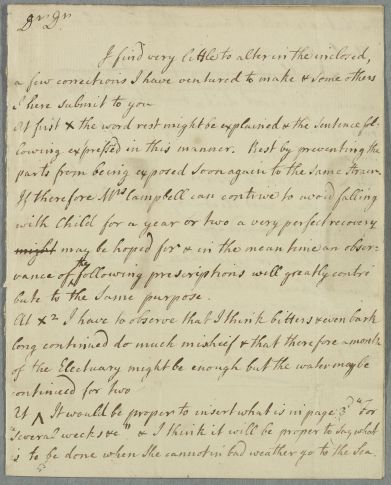 Dr Dr
I find very little to alter in the inclosed,
a few corrections I have ventured to make & some others
I here submit to you
At first X the word rest might be explained & the sentence fol-
lowing expressed in this manner. Rest by preventing the
parts from being exposed soon again to the same strain.
If therefore Mrs Campbell can contrive to avoid falling
with Child for a year or two a very perfect recovery
might may be hoped for & in the mean time an obser-
vance of the following prescriptions will greatly contri
bute to the same purpose.
At X2 I have to observe that I think bitters & even bark
long continued do much mischeif & that therefore a month
of the Electuary might be enough but the water may be
continued for two
At ^ It would be proper to insert what is in page 3d "For
"several weeks &c" & I think it will be proper to say what
is to be done when she cannot in bad weather go to the Sea.